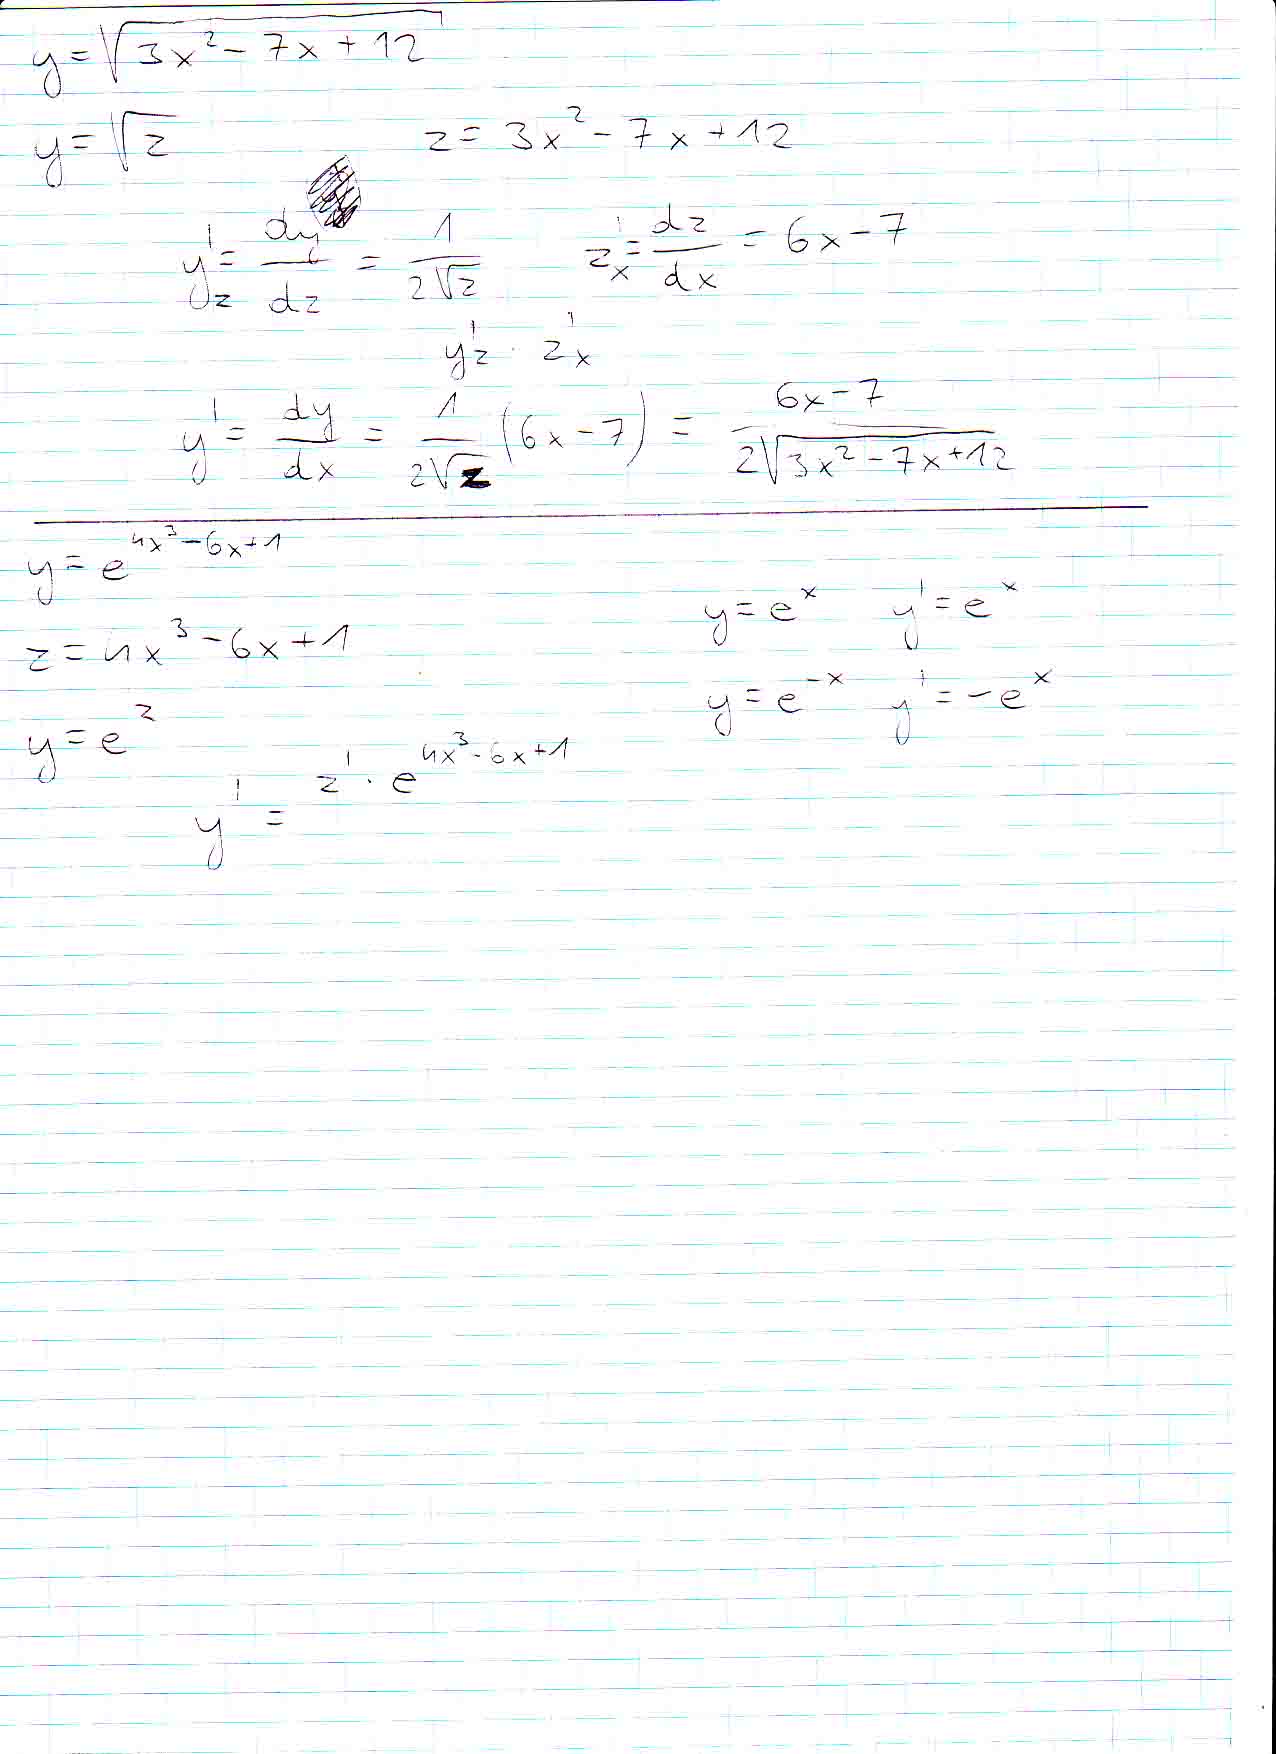 y = √(3x² - 7x + 12)
y = √z z = 3x² - 7x + 12
y'z = dy/dz = 1/(2√z) z'x = dz/dx = 6x - 7
y'z · z'x
y' = dy/dx = 1/(2√z) (6x - 7) = (6x - 7)/(2√(3x² - 7x + 12))
y = e^(4x³ - 6x + 1)
y = e^x y' = e^x
z = 4x³ - 6x + 1
y = e^(-x) y' = -e^x
y = e^z
y' = z' · e^(4x³ - 6x + 1)